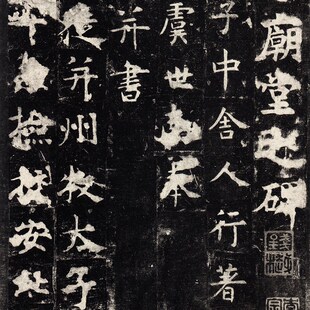 廟堂之碑
子中舍人行著
虞世南奉
并書
徒并州牧太子
牛撿校安北